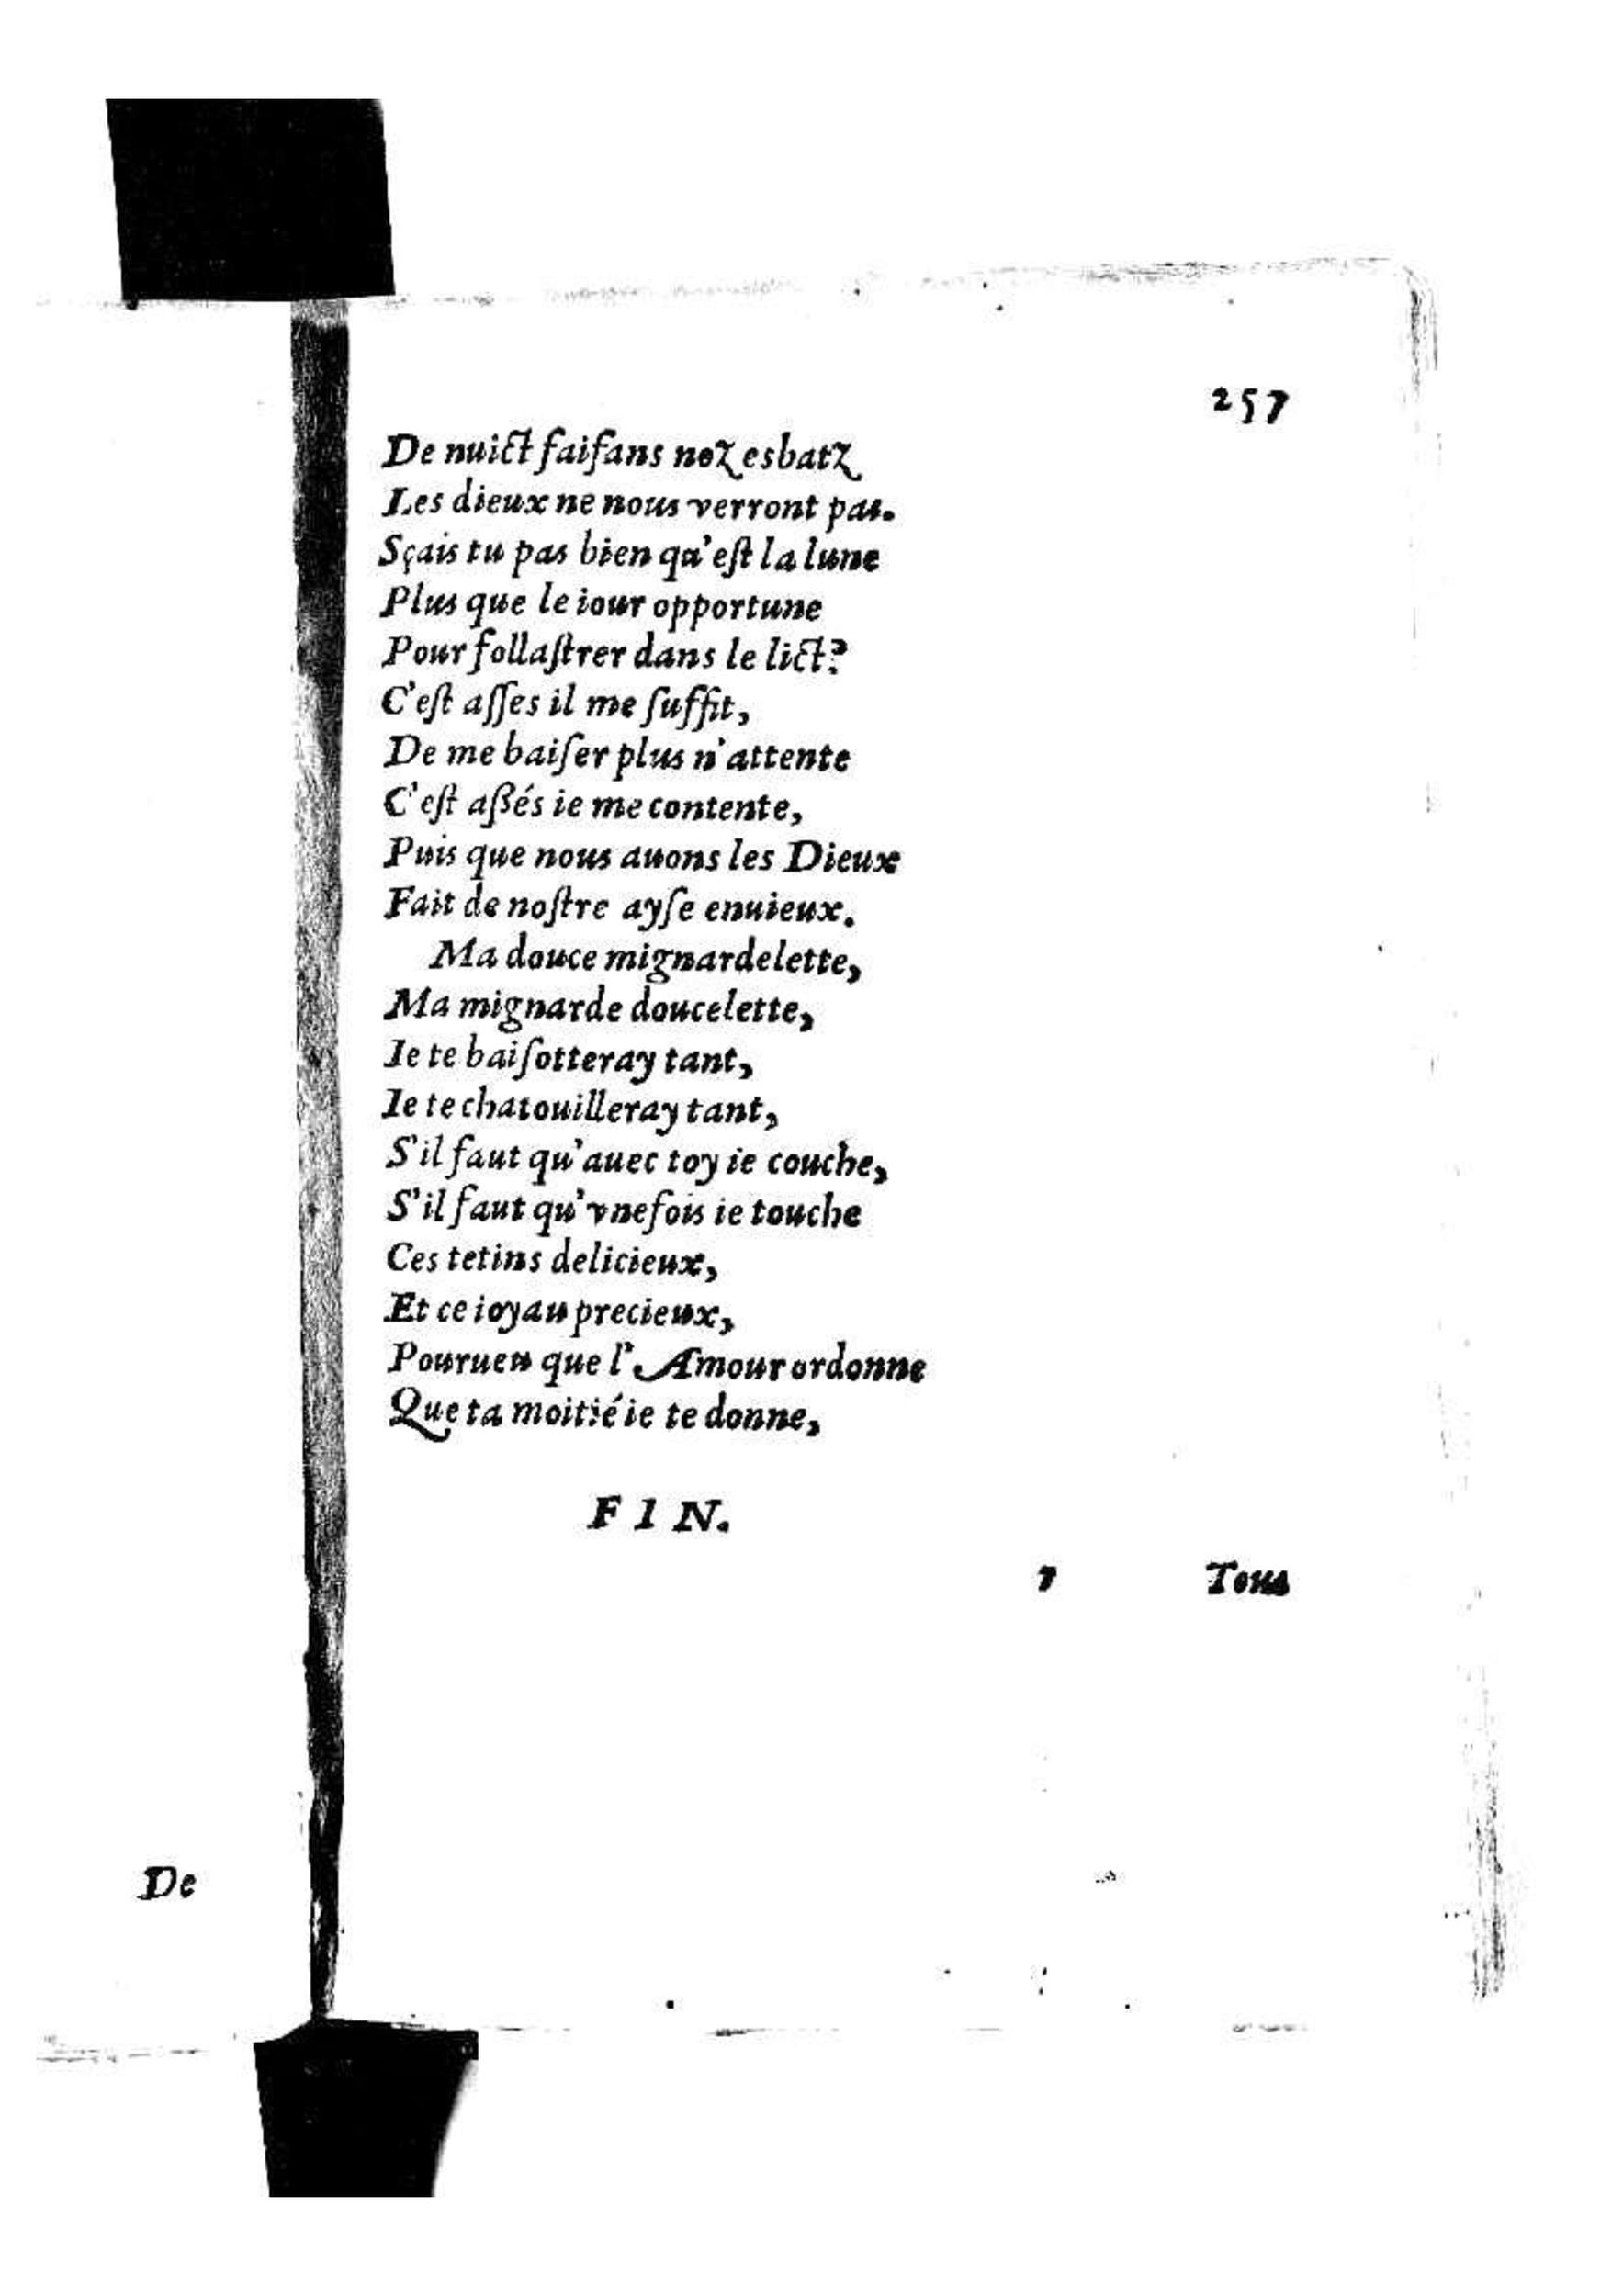 257
De nuict faiſans noz esbatz
Les dieux ne nous verront pas.
Sçais tu pas bien qu'eſt la lune
Plus que le iour opportune
Pour follaſtrer dans le lict?
C'eſt aſſes il me ſuffit,
De me baiſer plus n'attente
C'eſt aßés ie me contente,
Puis que nous auons les Dieux
Fait de noſtre ayſe enuieux.
Ma douce mignardelette,
Ma mignarde doucelette,
Ie te baiſotteray tant,
Ie te chatouilleray tant,
S'il faut qu'auec toy ie couche,
S'il faut qu'vne fois ie touche
Ces tetins delicieux,
Et ce ioyau precieux,
Pourueu que l'Amour ordonne
Que ta moitié ie te donne,
FIN.
Tous
De